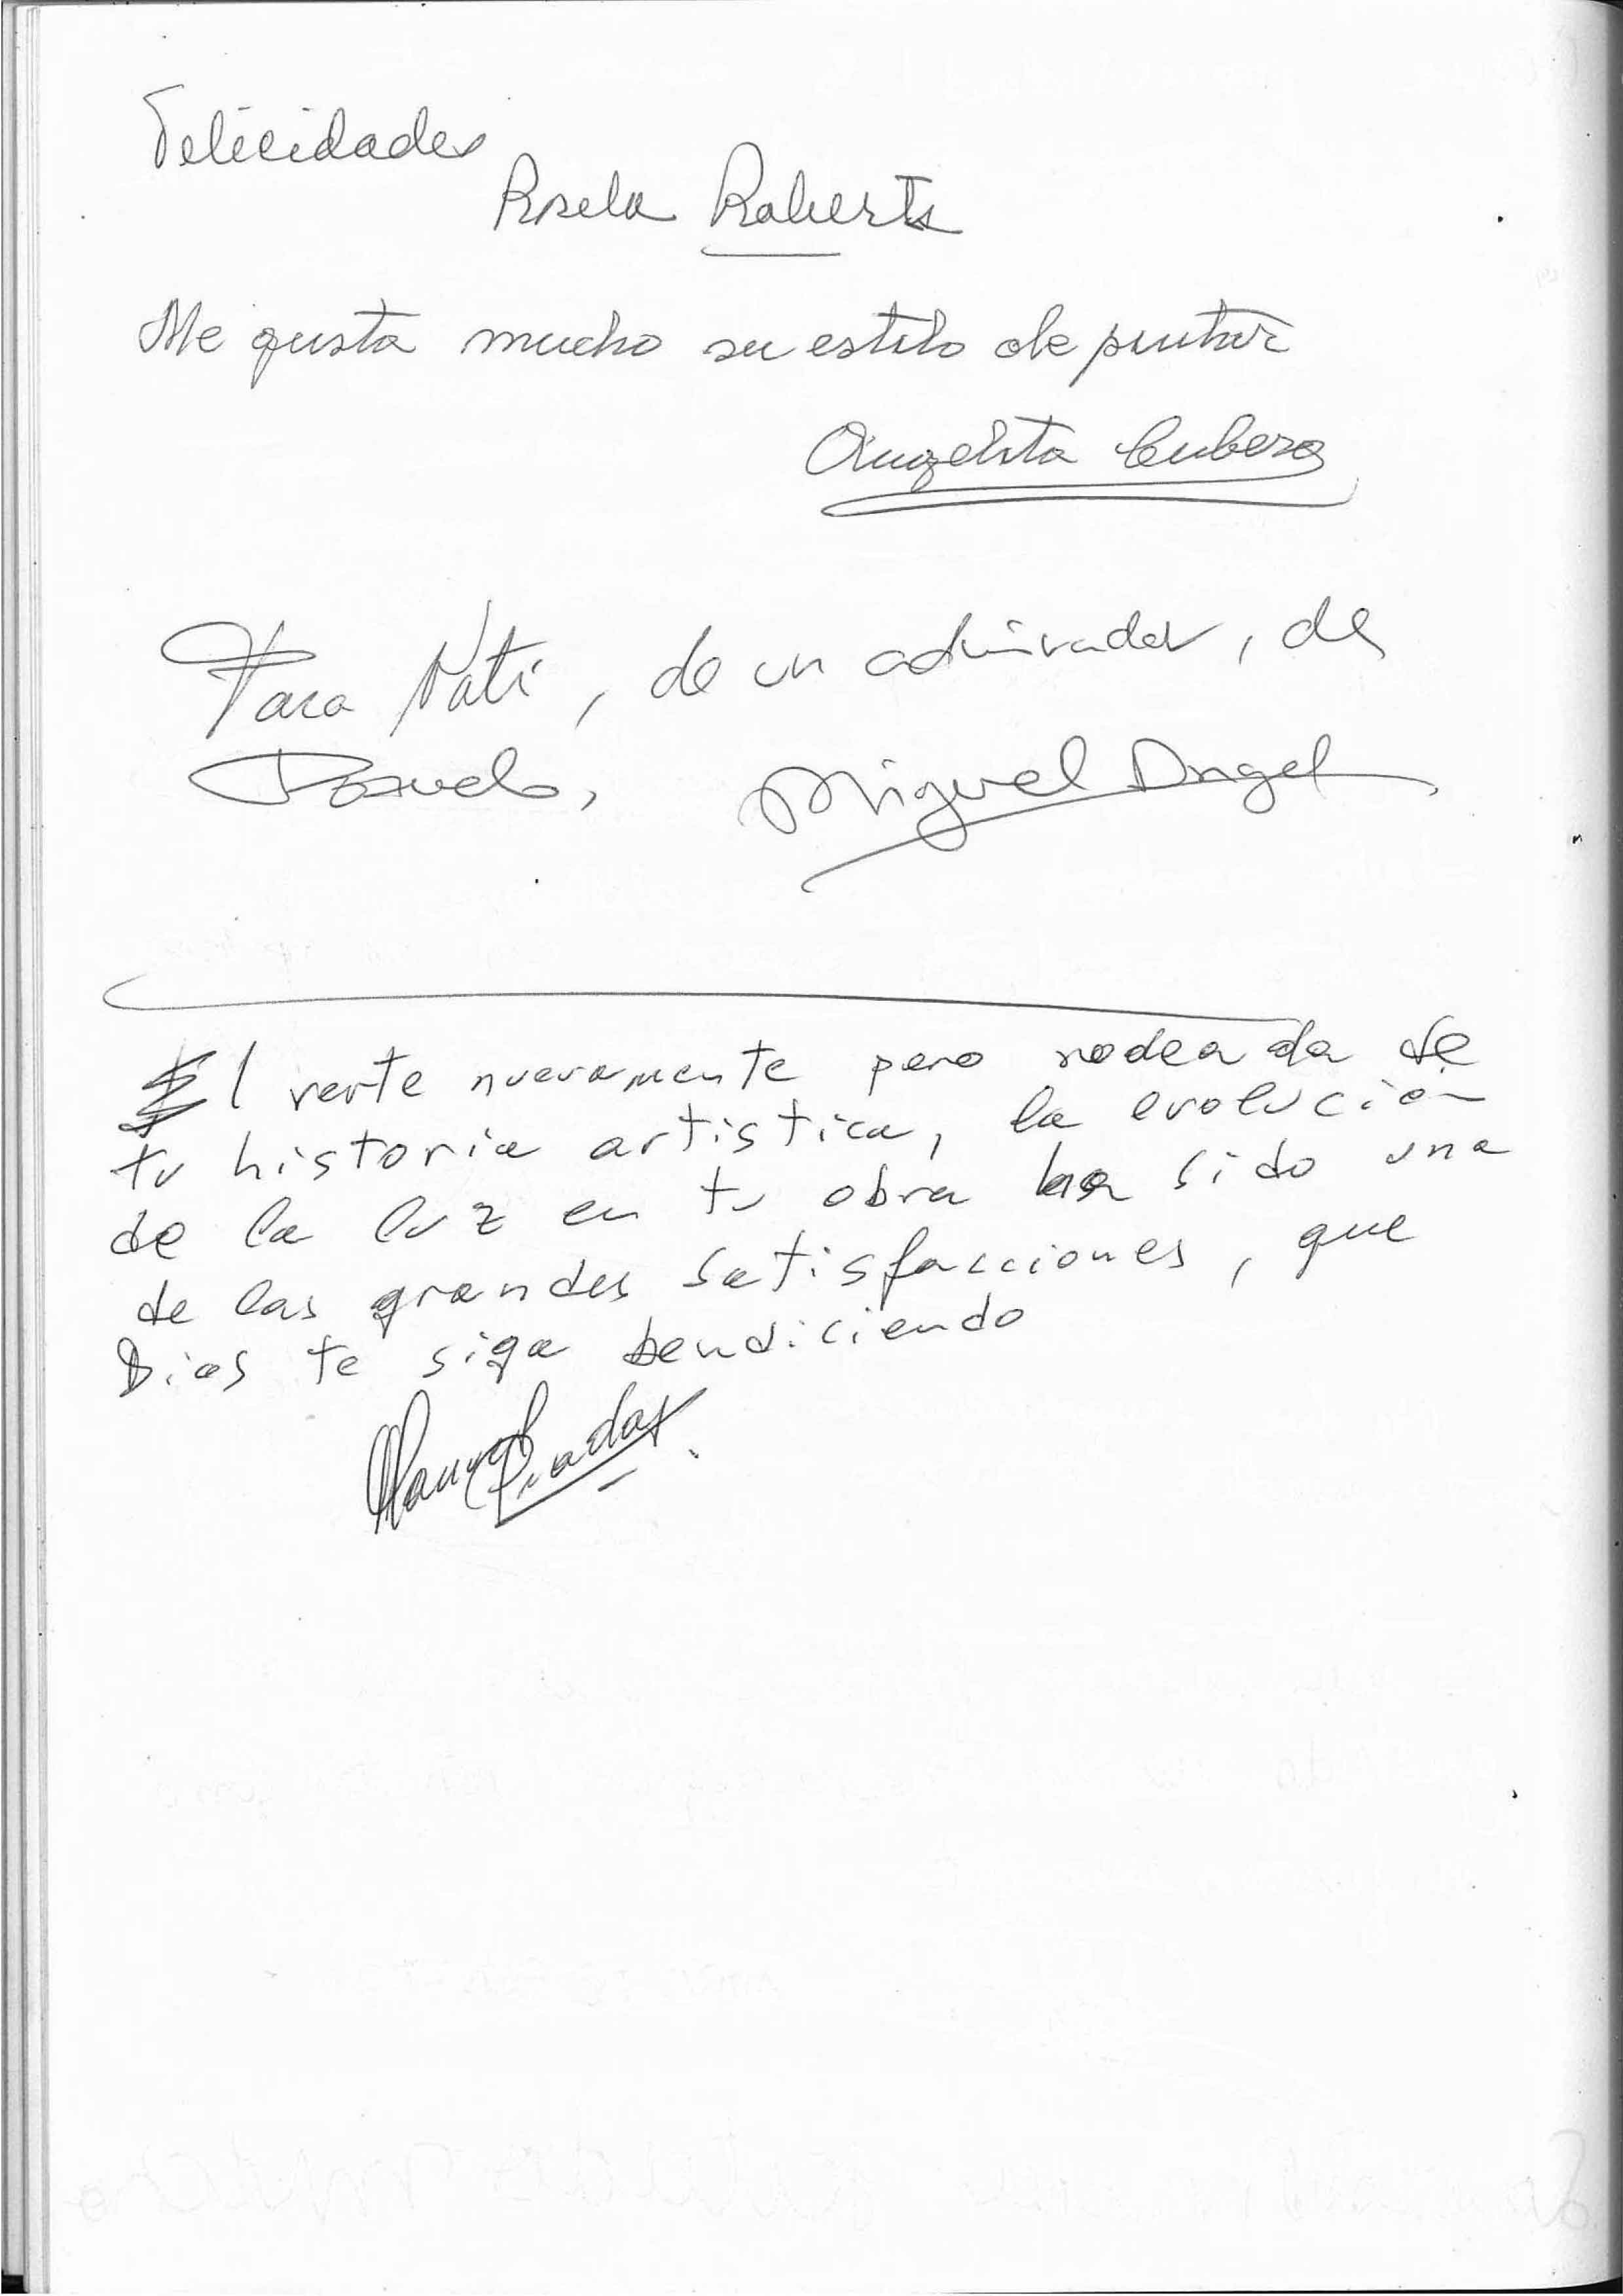 Felicidades
Rosela Roberts
Me gusta mucho su estilo de pintar
Angelita Cubero
Para Nati, de un admirador, de
Pozuelo, Miguel Angel
El verte nuevamente pero rodeada de
tu historia artistica, la evolución
de la luz en tu obra ha sido una
de las grandes satisfacciones, que
Dios te siga bendiciendo
Manuel